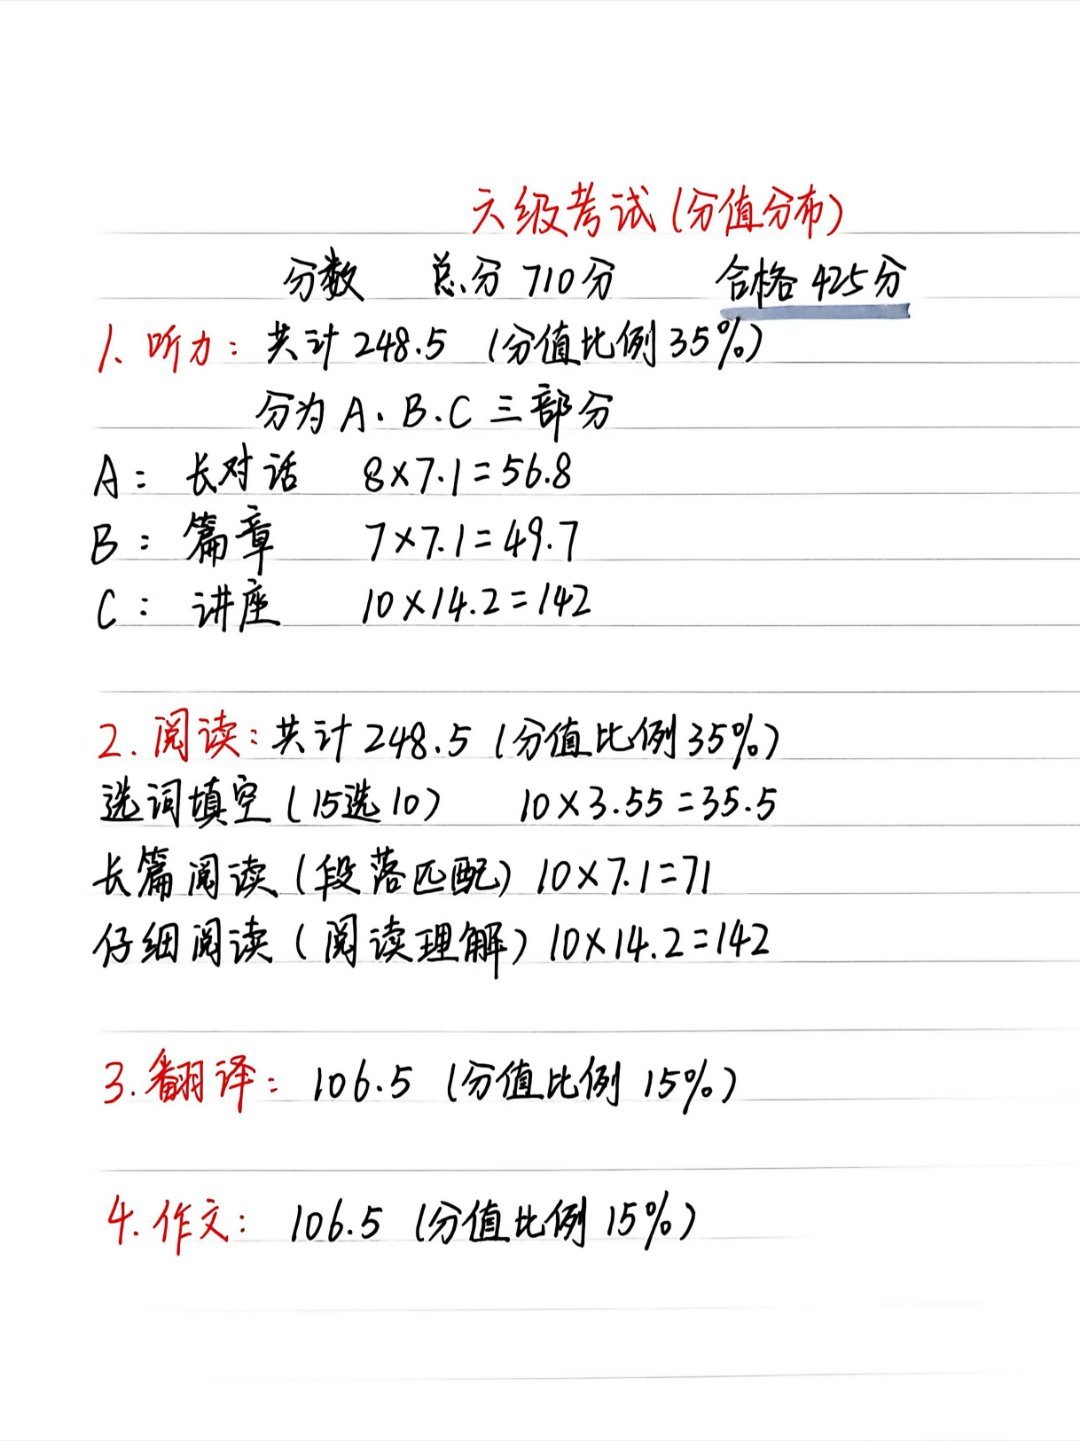 六级考试(分值分布)
分数 总分 710分 合格 425分
1、听力：共计 248.5 (分值比例 35%)
分为 A.B.C 三部分
A： 长对话 8×7.1=56.8
B： 篇章 7×7.1=49.7
C： 讲座 10×14.2=142
2.阅读：共计 248.5 (分值比例 35%)
选词填空(15选10) 10×3.55=35.5
长篇阅读(段落匹配) 10×7.1=71
仔细阅读(阅读理解) 10×14.2=142
3.翻译： 106.5 (分值比例 15%)
4.作文： 106.5 (分值比例 15%)